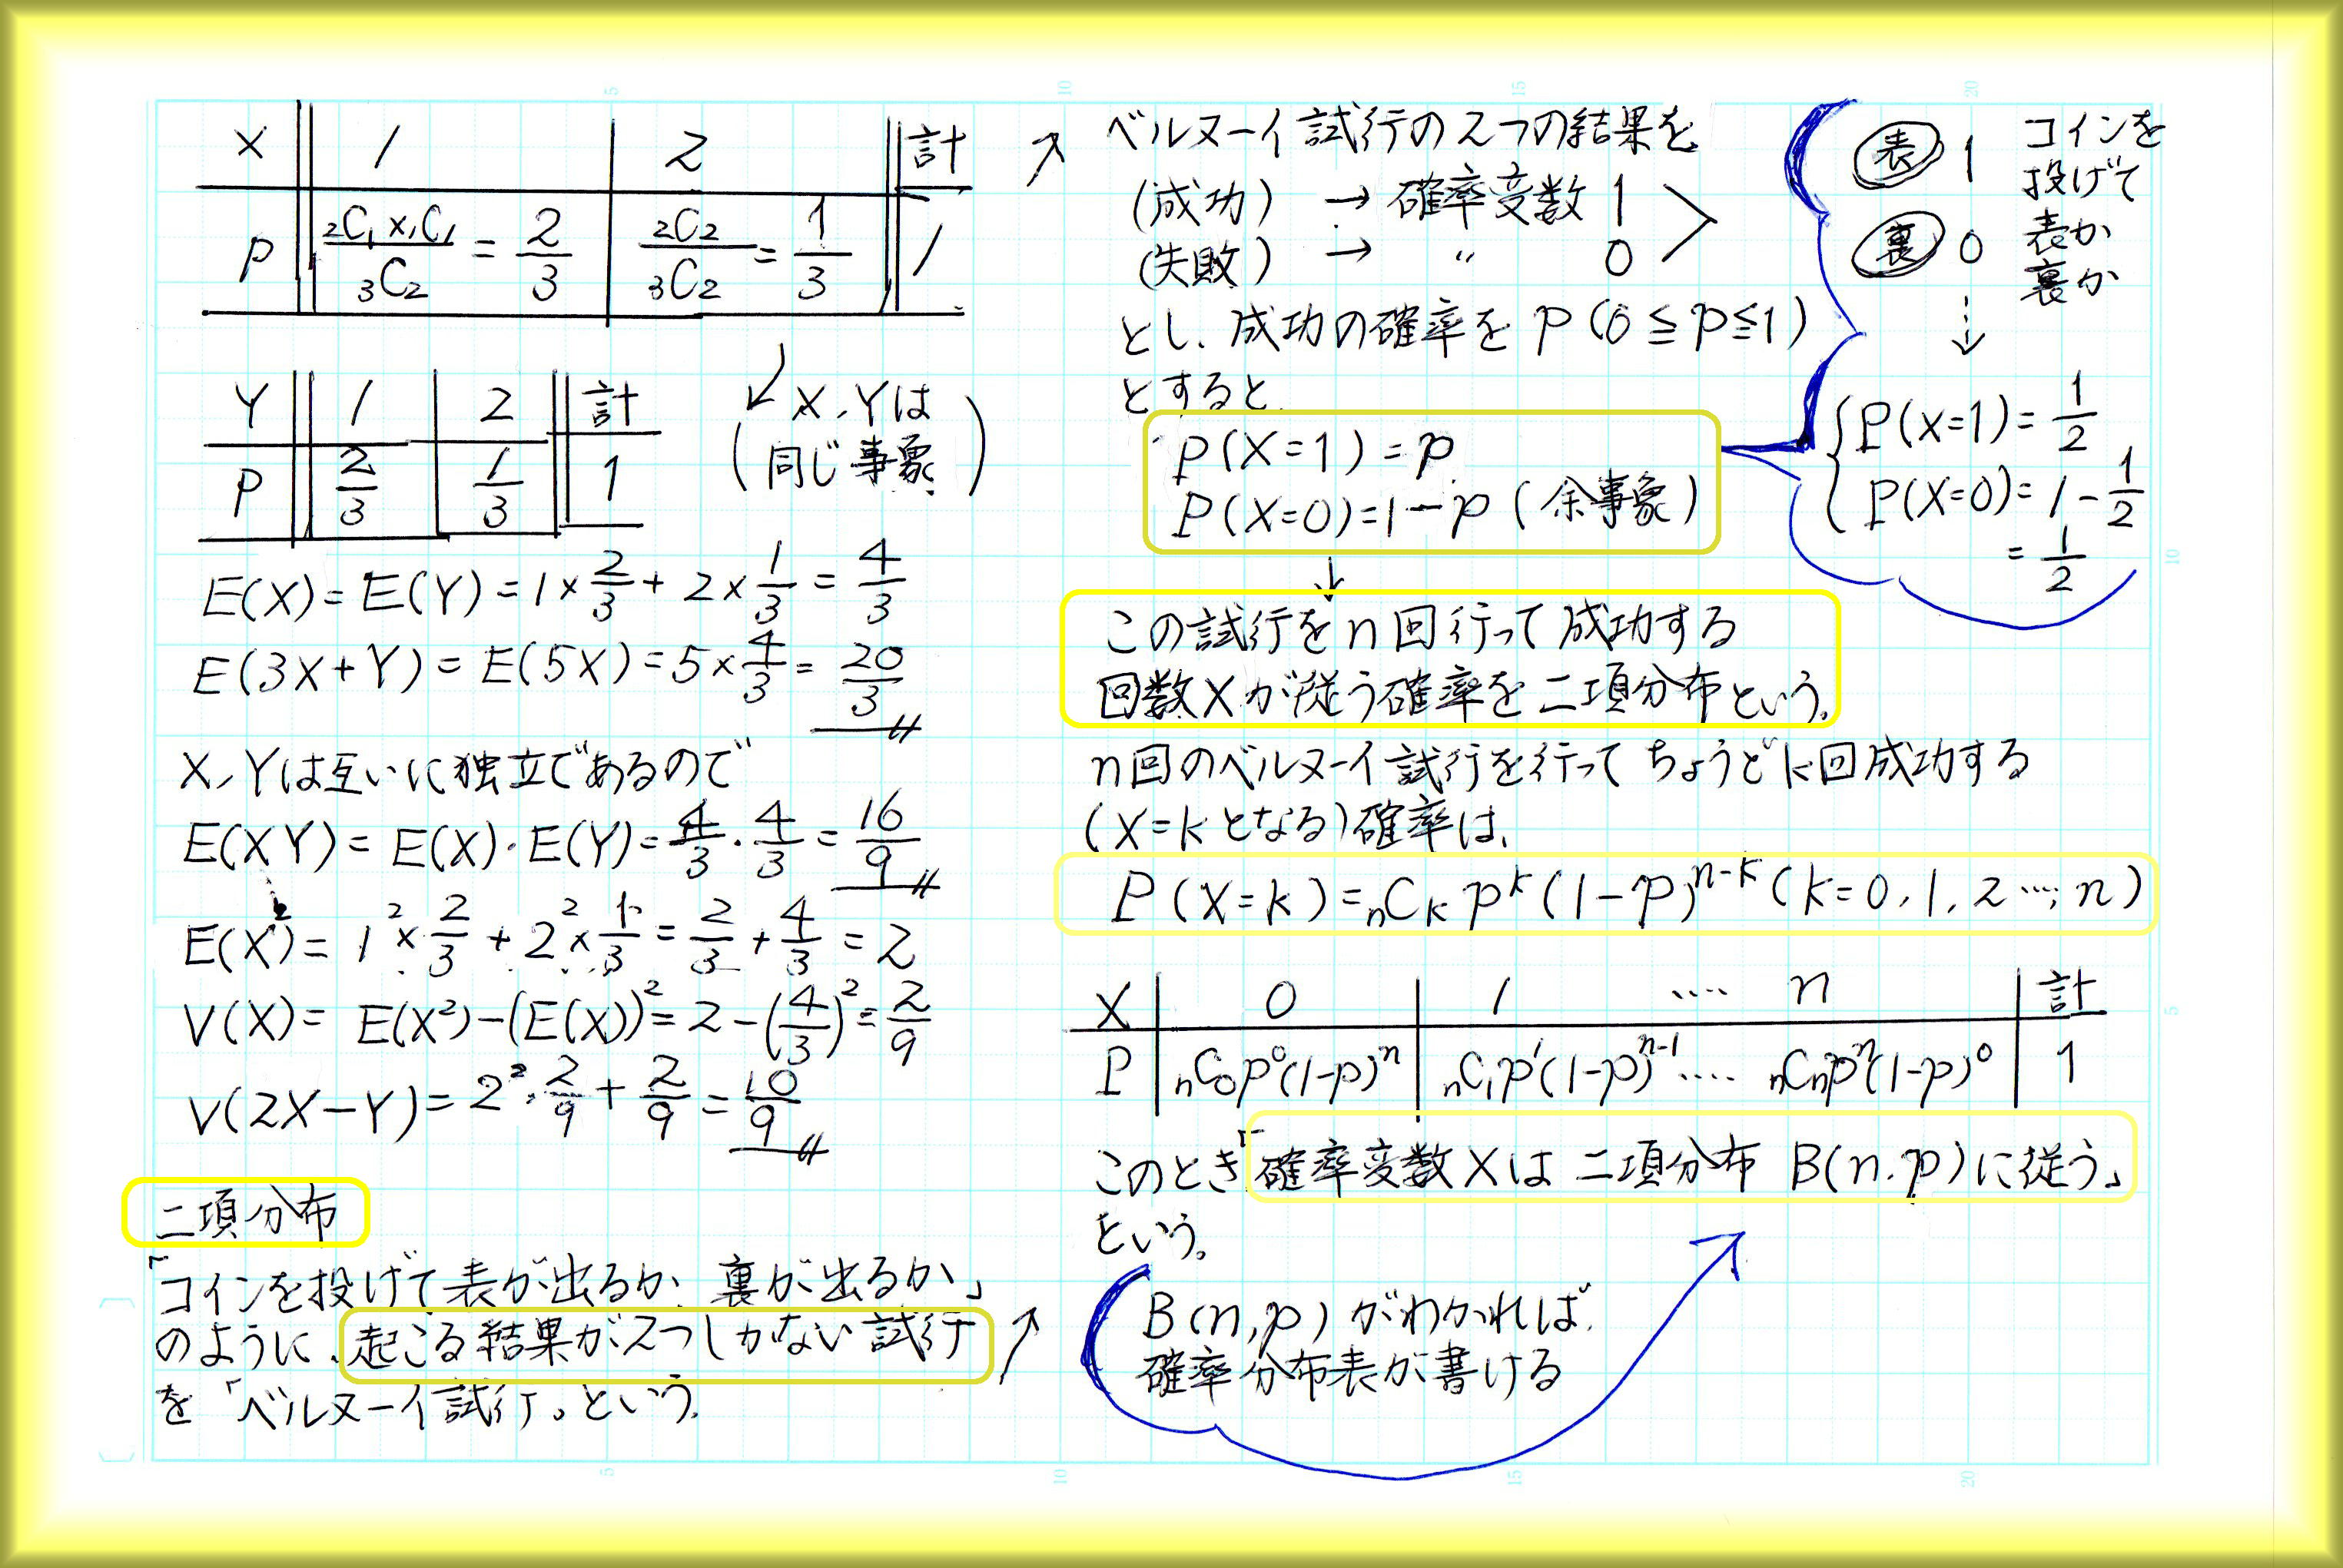 X 1 2 計
P ₂C₁×₁C₁/₃C₂ = 2/3 ₂C₂/₃C₂ = 1/3 1
Y 1 2 計
P 2/3 1/3 1
(X,Yは
同じ事象)
E(X)=E(Y)=1×2/3+2×1/3=4/3
E(3X+Y)=E(5X)=5×4/3=20/3
X,Yは互いに独立であるので
E(XY)=E(X)・E(Y)=4/3・4/3=16/9
E(X²)=1²×2/3+2²×1/3=2/3+4/3=2
V(X)=E(X²)-(E(X))²=2-(4/3)²=2/9
V(2X-Y)=2²・2/9+2/9=10/9
二項分布
「コインを投げて表が出るか、裏が出るか」
のように、起こる結果が2つしかない試行
を「ベルヌーイ試行」という。
ベルヌーイ試行の2つの結果を
(成功) → 確率変数 1
(失敗) → 〃 0
とし、成功の確率をp(0≦p≦1)
とすると、
P(X=1)=p
P(X=0)=1-p(余事象)
表 1
裏 0
コインを
投げて
表か
裏か
P(X=1)=1/2
P(X=0)=1-1/2
=1/2
この試行をn回行って成功する
回数Xが従う確率を二項分布という。
n回のベルヌーイ試行を行ってちょうどk回成功する
(X=kとなる)確率は、
P(X=k)=nCk p^k(1-p)^(n-k)(k=0,1,2…,n)
X 0 1 …. n 計
P nC₀p⁰(1-p)^n nC₁p¹(1-p)^(n-1) …. nCnp^n(1-p)⁰ 1
このとき「確率変数Xは二項分布 B(n.p)に従う」
という。
B(n,p)がわかれば、
確率分布表が書ける